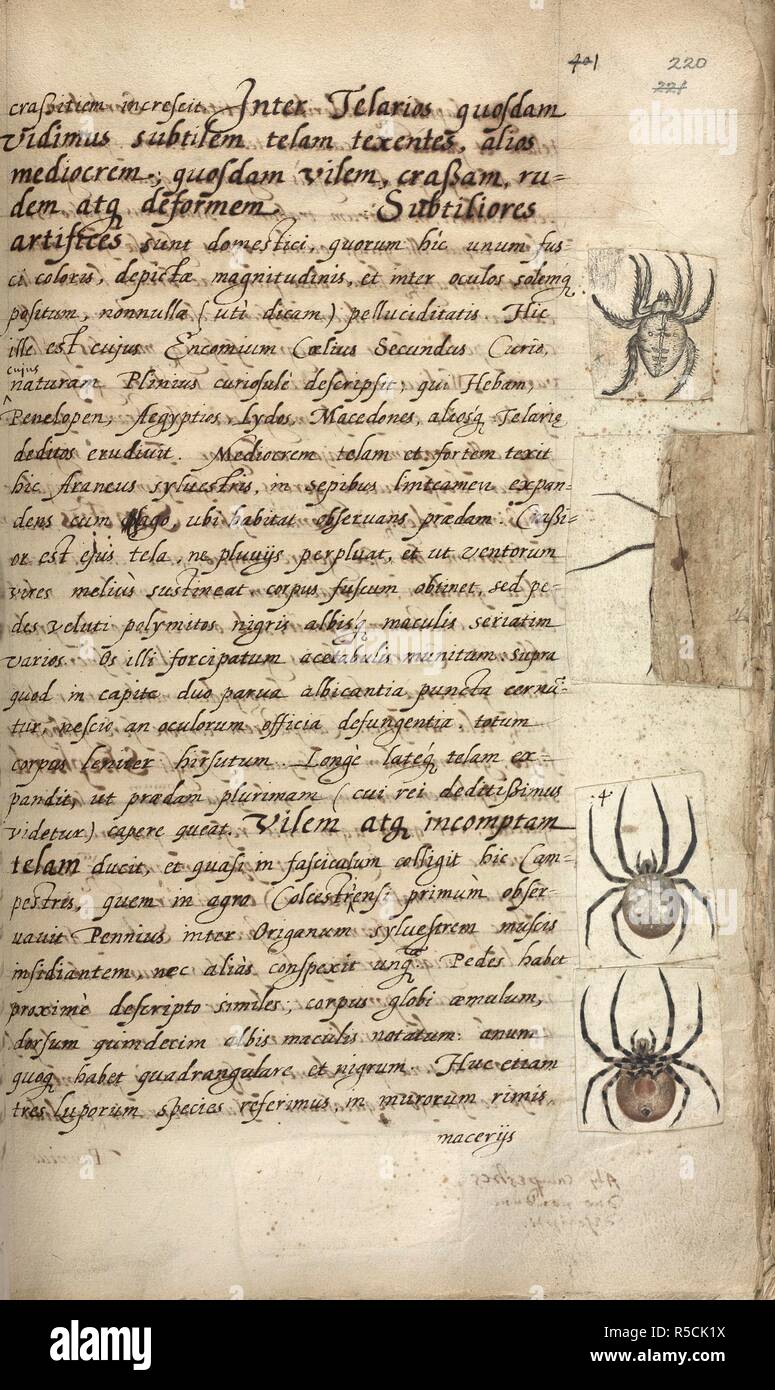 401 220
221
craßitiem increscit. Inter Telarios quosdam
vidimus subtilem telam texentes, alios
mediocrem; quosdam vilem, craßam, ru=
dem atq deformem. Subtiliores
artifices sunt domestici, quorum hic unum fus=
ci coloris, depictæ magnitudinis, et inter oculos solemq
positum, nonnulla (uti dicam) pelluciditatis. Hic
ille est cujus Encomium Cœlius Secundus Curio,
cujus
naturam Plinius curiosulè descripsit, qui Hebam,
Penelopen, Aegyptios, Lydos, Macedones, aliosq Telariæ
deditos erudivit. Mediocrem telam et fortem texit
hic Araneus sylvestris, in sepibus linteamen expan=
dens cum ubi habitat observans prædam. Craßi=
or est ejus tela, ne pluvijs perpluat, et ut ventorum
vires meliùs sustineat. corpus fuscum obtinet, sed pe=
des veluti polymitos nigris albisq maculis seriatim
varios. Os illi forcipatum acetabulis munitum: supra
quod in capite duo parva albicantia puncta cernū=
tur, nescio an oculorum officia defungentia. totum
corpus leniter hirsutum. Longè lateq telam ex=
pandit, ut prædam plurimam (cui rei deditißimus
videtur) capere queat. Vilem atq incomptam
telam ducit, et quasi in fasciculum colligit hic Cam=
pestris, quem in agro Colcestrensi primùm obser=
vavit Pennius inter Origanum sylvestrem muscis
insidiantem, nec aliàs conspexit unq. Pedes habet
proximè descripto similes; corpus globi æmulum,
dorsum quindecim albis maculis notatum: anum
quoq habet quadrangulare et nigrum. Huc etiam
tres luporum species referimus, in murorum rimis,
macerijs
4
alamy
Image ID: R5CK1X
www.alamy.com